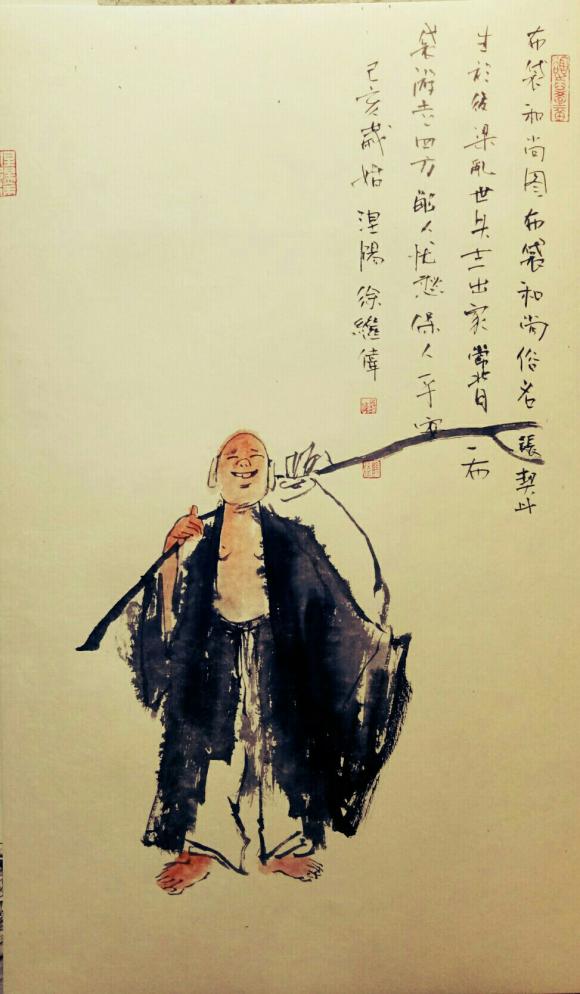 布袋和尚图布袋和尚俗名張契此
生於後梁乱世出家常背一布
袋游走四方解人忧愁保人平安
己亥歲始涅陽徐繼偉